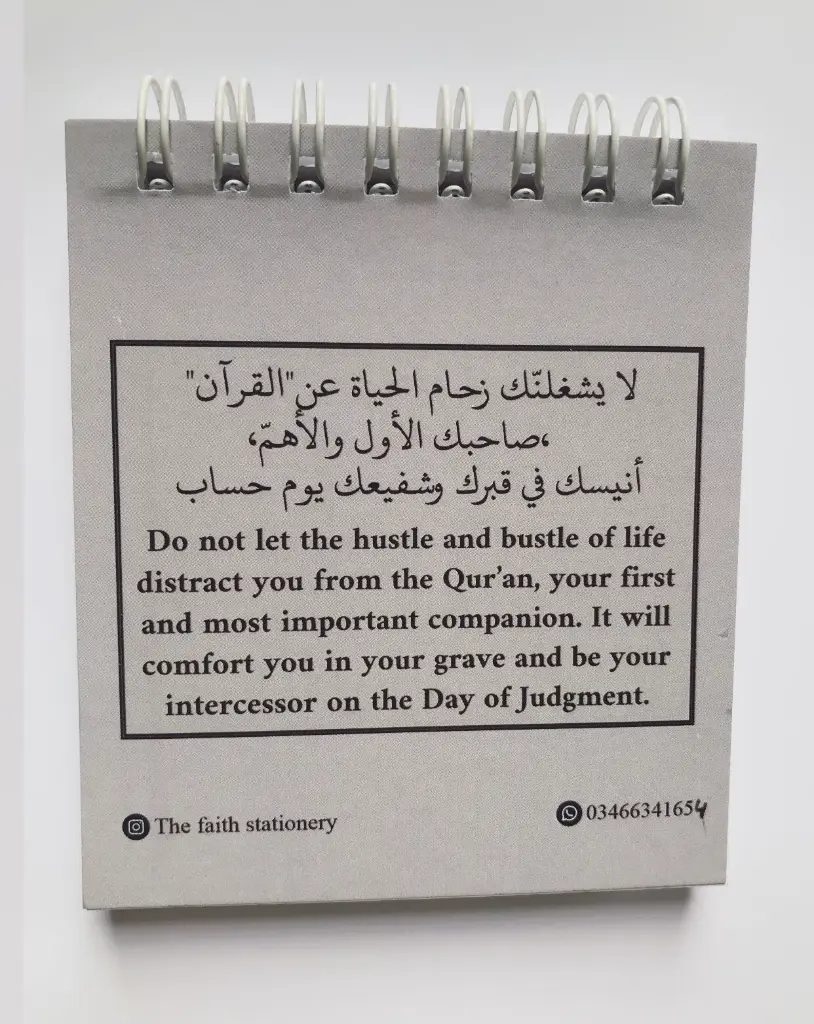 لا يشغلنّك زحام الحياة عن"القرآن"
،صاحبك الأول والأهمّ،
أنيسك في قبرك وشفيعك يوم حساب
Do not let the hustle and bustle of life
distract you from the Qur’an, your first
and most important companion. It will
comfort you in your grave and be your
intercessor on the Day of Judgment.
The faith stationery
03466341654